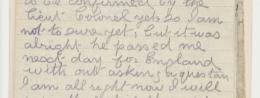 to be confirmed by the
Lieut Colonel yet so I am
not to sure yet, but it was
alright he passed me
next day for England
with out asking a question
I am all right now I will